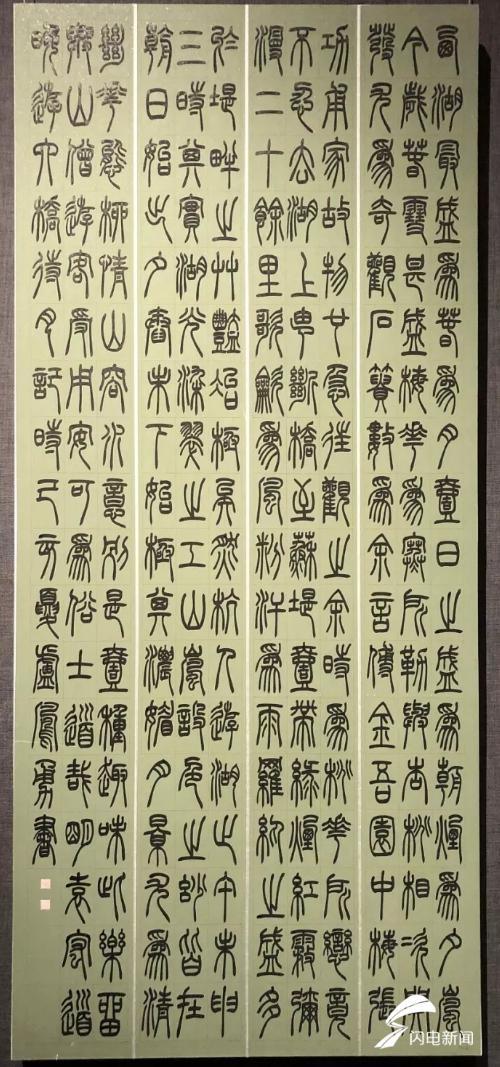 西湖最盛為春為月壹日之盛為朝煙為夕嵐
今歲春雪甚盛梅花為寒所勒與杏桃相次開
發尤為奇觀石簣數為余言傅金吾園中梅張
功甫家故物也急往觀之余時為桃花所戀竟
不忍去湖上由斷橋至蘇堤壹帶綠煙紅霧彌
漫二十餘里歌龡為風粉汗為雨羅紈之盛多
於堤畔之艸豔冶極矣然杭人遊湖止午未申
三時其實湖光染翠之工山嵐設色之妙皆在
朝日始出夕舂未下始極其濃媚月景尤為清
絕花態柳情山容水意別是壹種趣味此樂留
與山僧遊客受用安可為俗士道哉明袁宏道
晚遊六橋待月記時己亥夏盧鳳勇書
闪电新闻